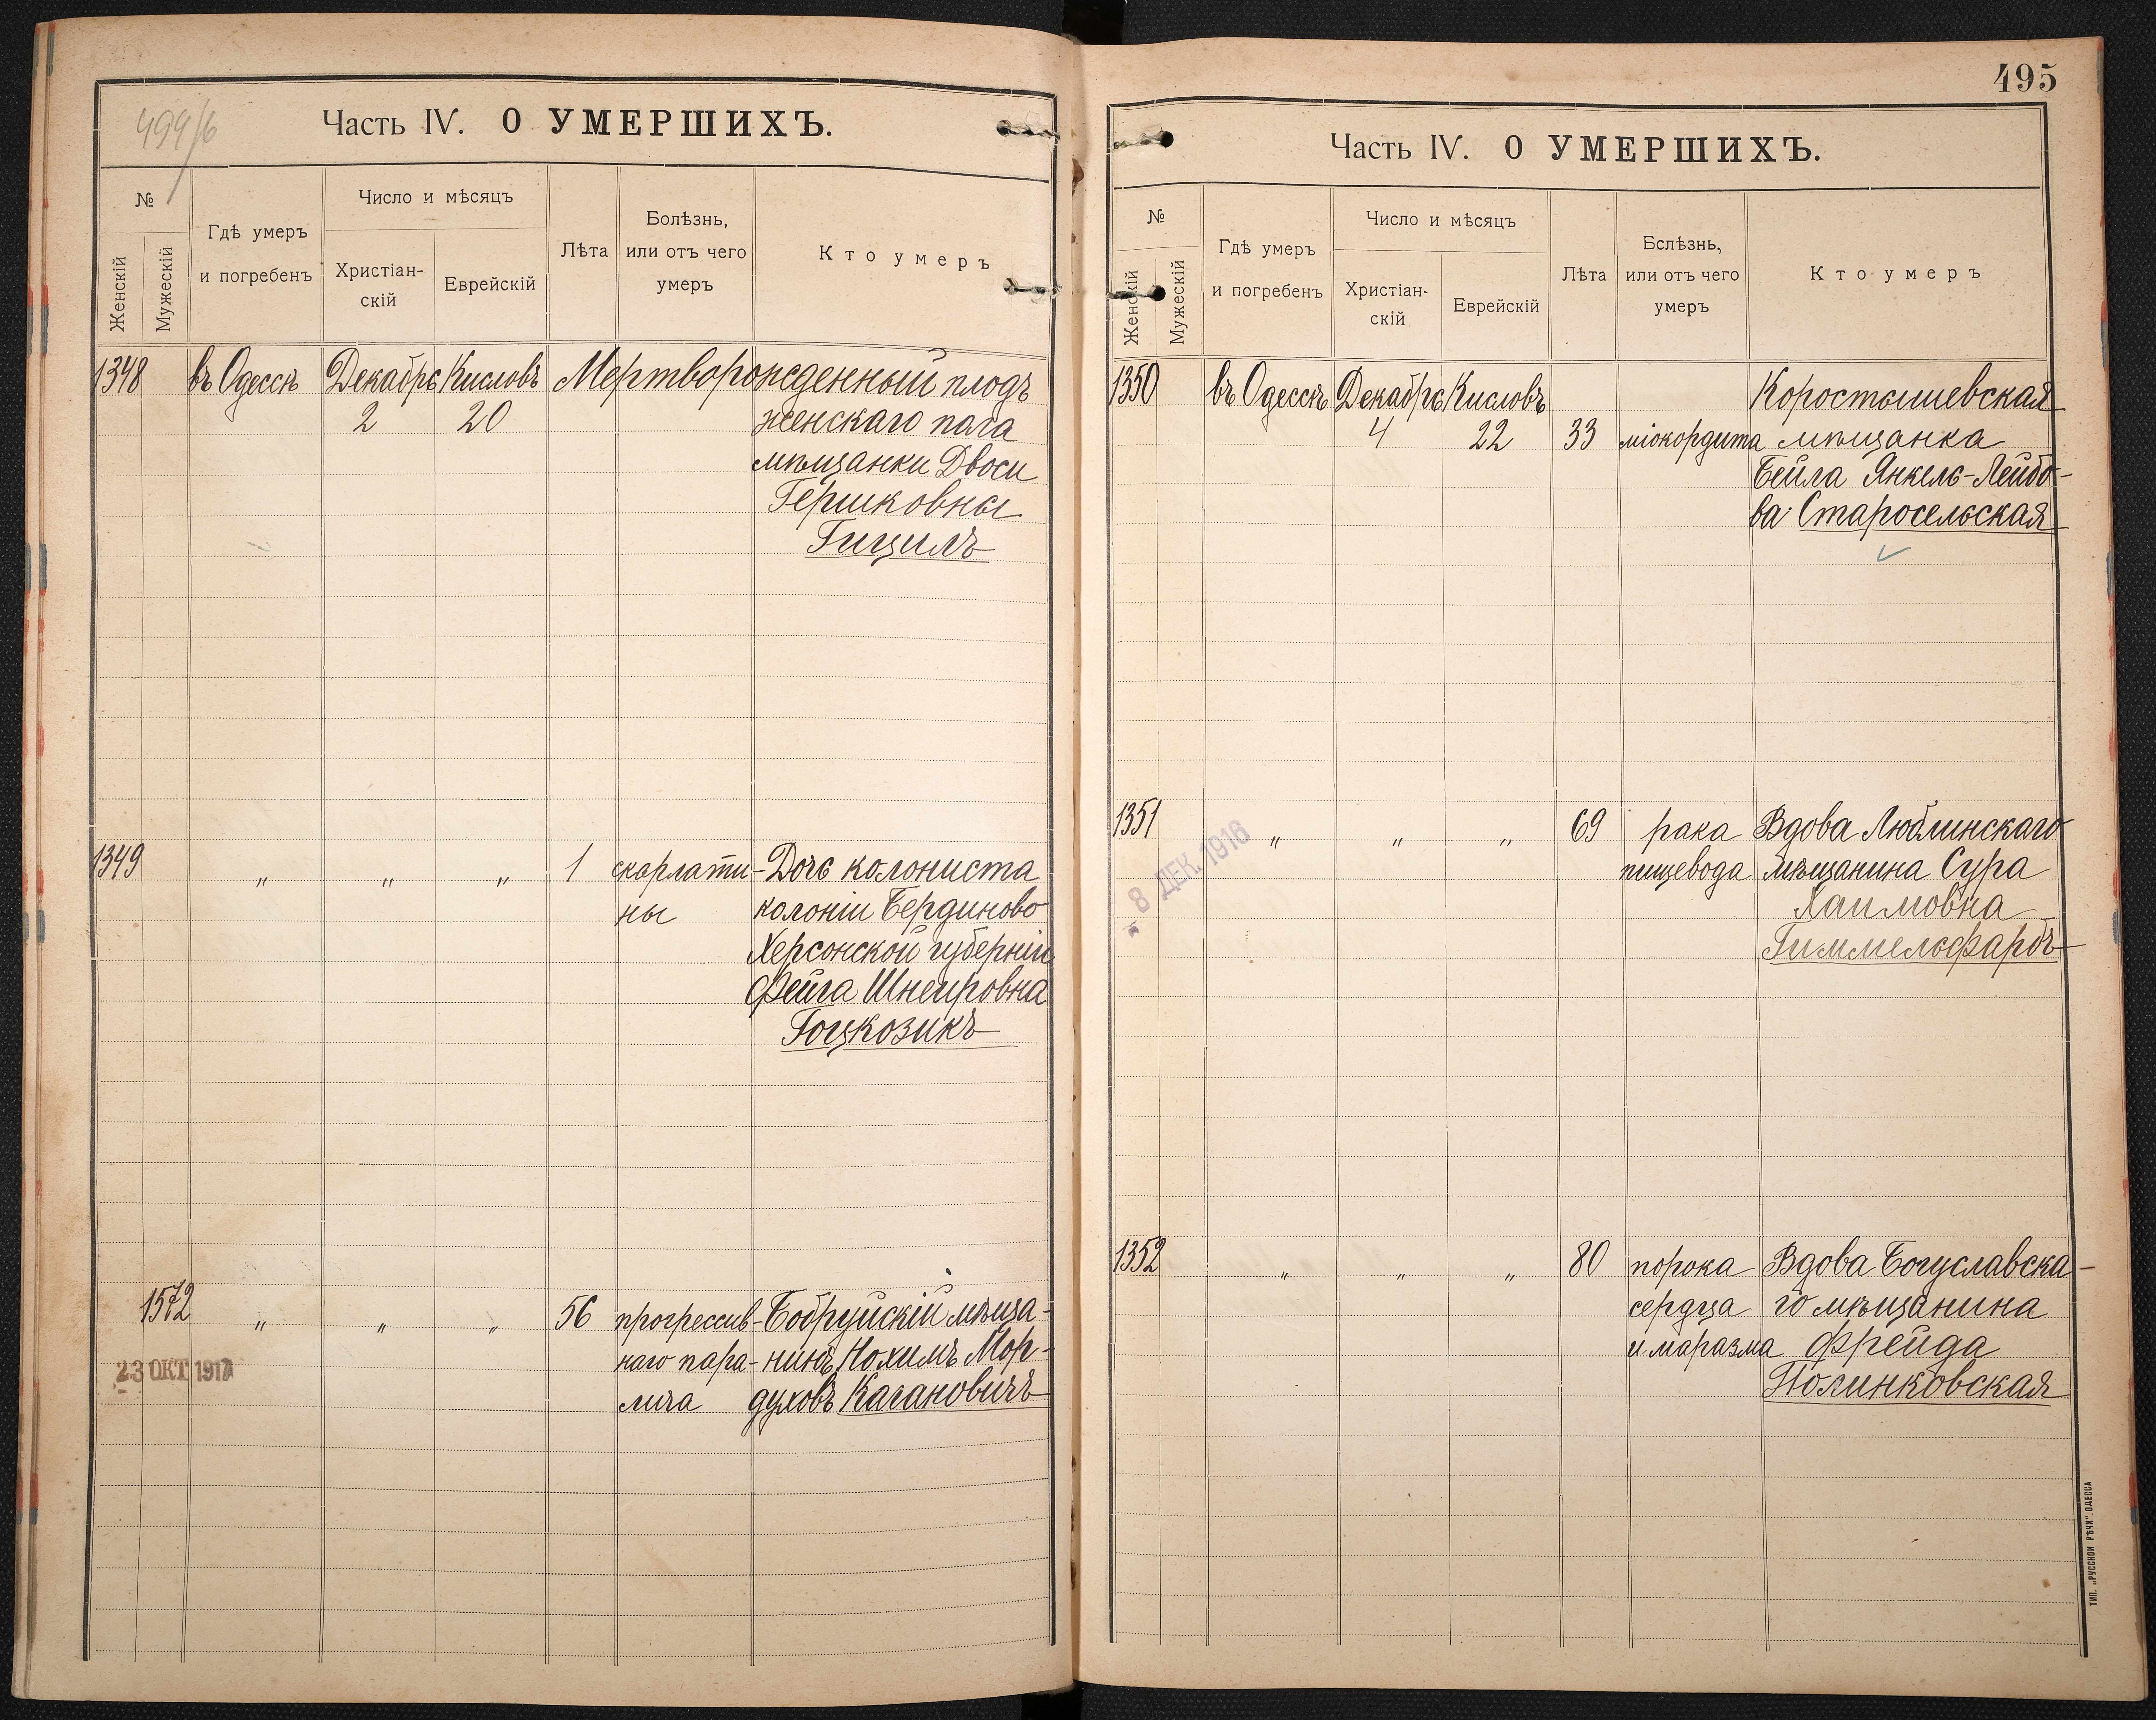 499/6
Часть IV. О УМЕРШИХЪ.
№
Женскій
Мужескій
Гдѣ умеръ
и погребенъ
Число и мѣсяцъ
Христіан-
скій
Еврейскій
Лѣта
Болѣзнь,
или отъ чего
умеръ
Кто умеръ
1348 въ Одессѣ Декабрь Кисловъ Мертворожденный плодъ
2 20 женскаго пола
мѣщанки Двоси
Гершковны
Гицилъ
1349 " " " 1 скарлати- Дочь колониста
ны колоніи Бердиново
Херсонской губерніи
Фейга Шнеировна
Гоцкозикъ
1572 " " " 56 прогрессив- Бобруйскій мѣща-
наго пара- нинъ Нохимъ Мор-
лича духовъ Кагановичъ
23 ОКТ 1917
495
Часть IV. О УМЕРШИХЪ.
№
Женскій
Мужескій
Гдѣ умеръ
и погребенъ
Число и мѣсяцъ
Христіан-
скій
Еврейскій
Лѣта
Бслѣзнь,
или отъ чего
умеръ
Кто умеръ
1350 въ Одессѣ Декабрь Кисловъ Коростышевская
4 22 33 міокордита мѣщанка
Бейла Янкель-Лейбо-
ва Старосельская
1351 " " " 69 рака Вдова Люблинскаго
пищевода мѣщанина Сура
Хаимовна
Гиммельфарбъ
- 8 ДЕК. 1916
1352 " " " 80 порока Вдова Богуславска-
сердца го мѣщанина
и маразма Фрейда
Полинковская
ТИП. „РУССКОЙ РѢЧИ" ОДЕССА